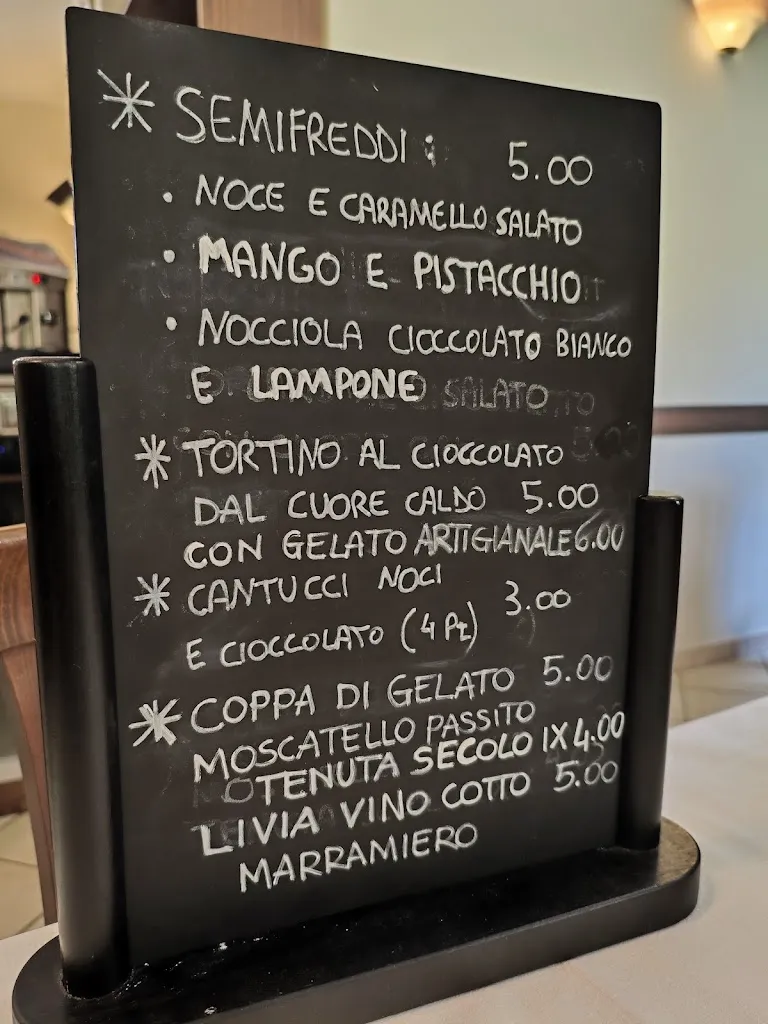 * SEMIFREDDI : 5.00
• NOCE E CARAMELLO SALATO
• MANGO E PISTACCHIO
• NOCCIOLA CIOCCOLATO BIANCO
E LAMPONE
* TORTINO AL CIOCCOLATO
DAL CUORE CALDO 5.00
CON GELATO ARTIGIANALE 6.00
* CANTUCCI NOCI
E CIOCCOLATO (4 Pz) 3.00
* COPPA DI GELATO 5.00
MOSCATELLO PASSITO
TENUTA SECOLO IX 4.00
LIVIA VINO COTTO 5.00
MARRAMIERO